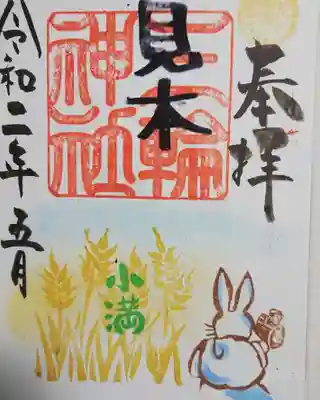 奉拝
見本
三輪神社
小満
令和二年五月